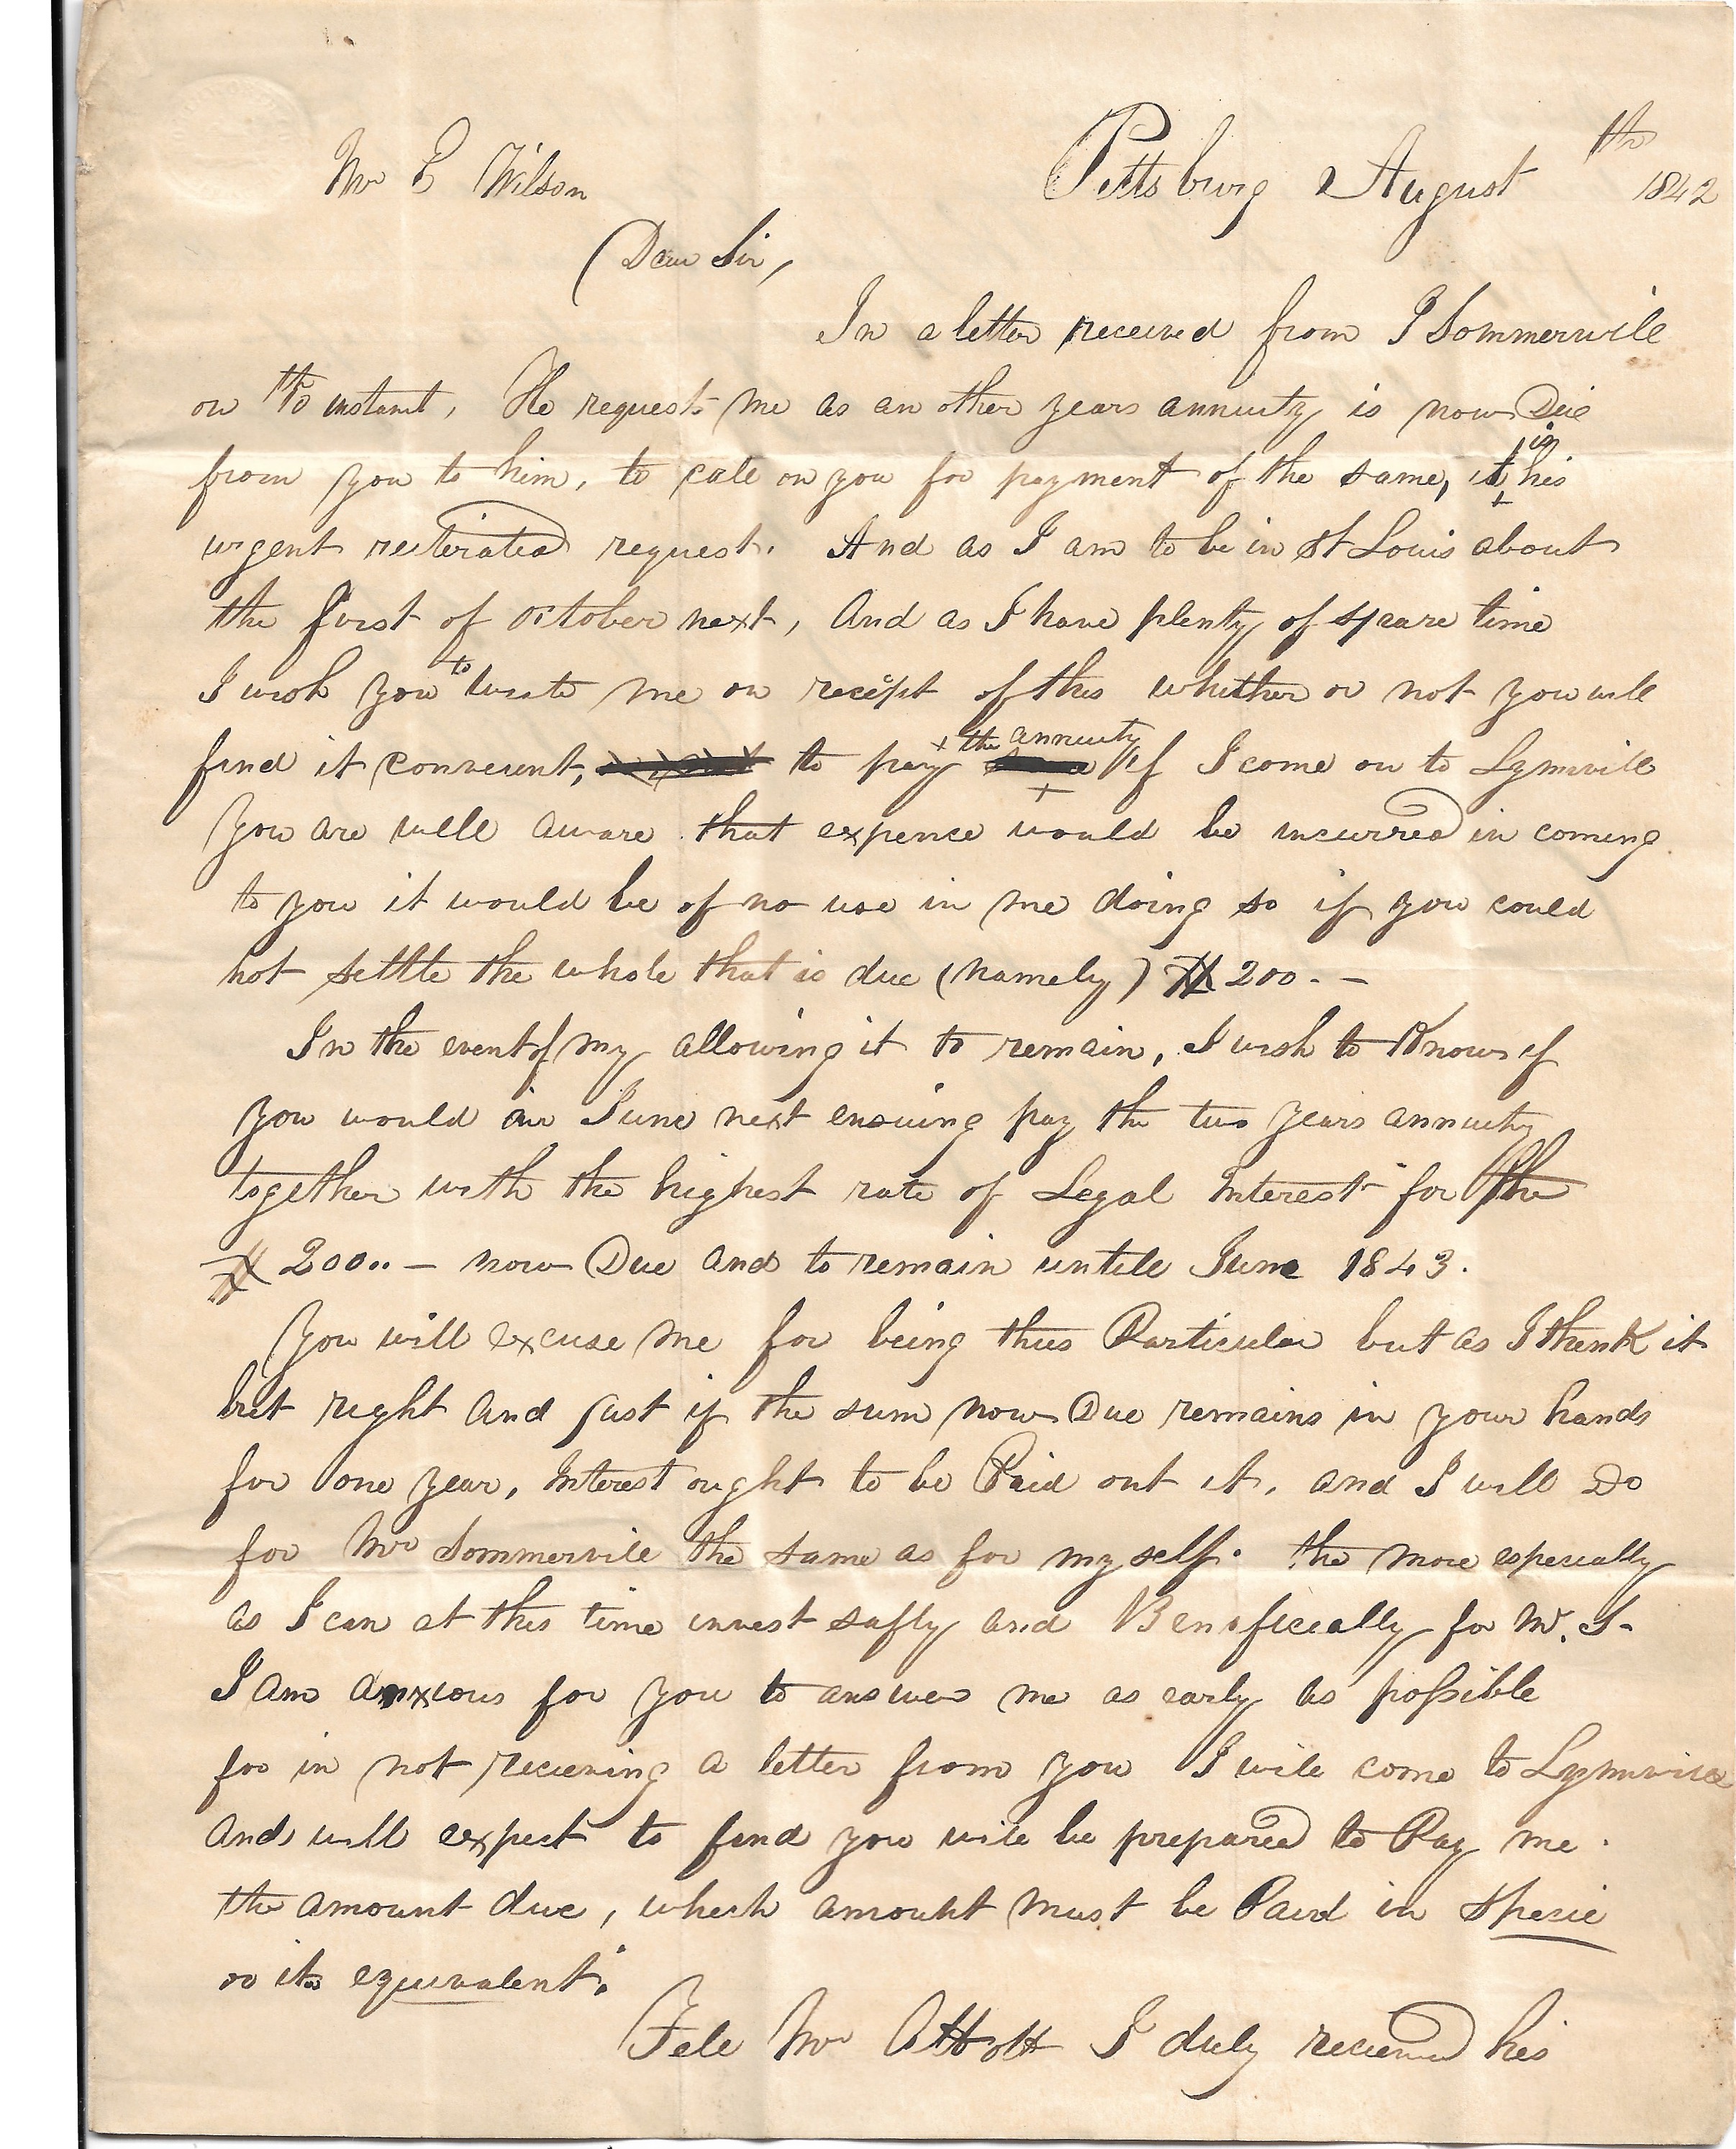 Mr E Wilson
Pittsburg August 1th 1842
Dear Sir,
In a letter received from J Sommervile
on instant, He requests me as an other years annuity is now Due
from you to him, to call on you for payment of the same, it is his
urgent reiterated request. And as I am to be in St Louis about
the first of October next, And as I have plenty of spare time
I wish you to write me on receipt of this whether or not you will
find it convenient, to pay the annuity if I come on to Lynnville
You are well aware that expence would be incurred in coming
to you it would be of no use in me doing so if you could
not settle the whole that is due (namely) $200.-
In the event of my allowing it to remain, I wish to Know if
you would in June next ensuing pay the two years annuity
together with the highest rate of Legal Interest for the
$200..- now Due and to remain untill June 1843.
You will excuse me for being thus Particular but as I think it
but right and just if the sum now Due remains in your hands
for one year, Interest ought to be Paid out it. and I will Do
for Mr Sommervile the same as for myself. the more especially
as I can at this time invest safly and Beneficially for Mr. S-
I am anxious for you to answer me as early as possible
for in not receiving a letter from you I will come to Lynnville
and will expect to find you will be prepared to Pay me.
the amount due, which amount must be Paid in Specie
or its equivalent.
Tell Mr Abbott I duly received his